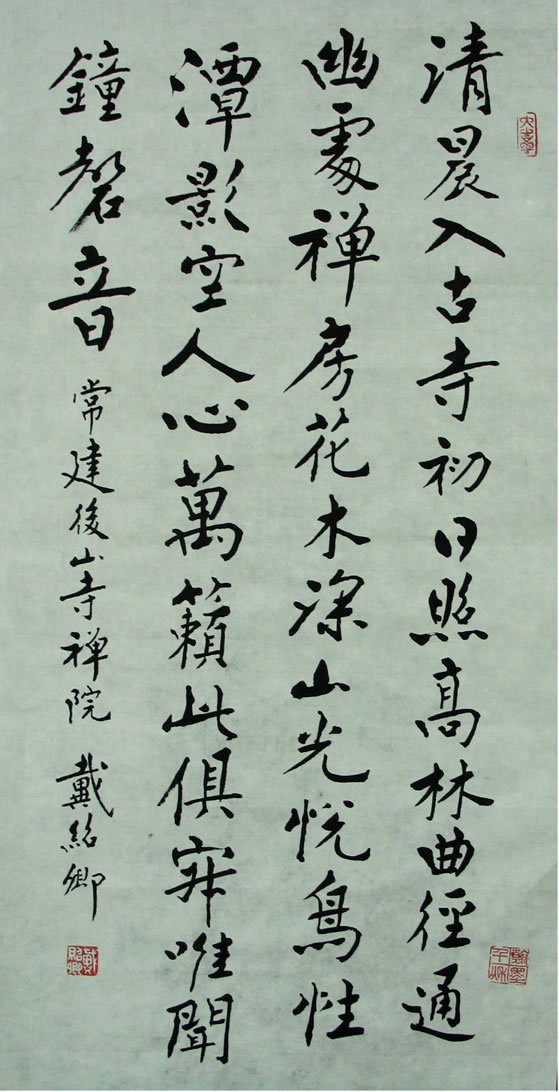 清晨入古寺初日照高林曲徑通
幽處禅房花木深山光悅鳥性
潭影空人心萬籟此俱寂唯聞
鐘磬音
常建後山寺禅院 戴紹卿